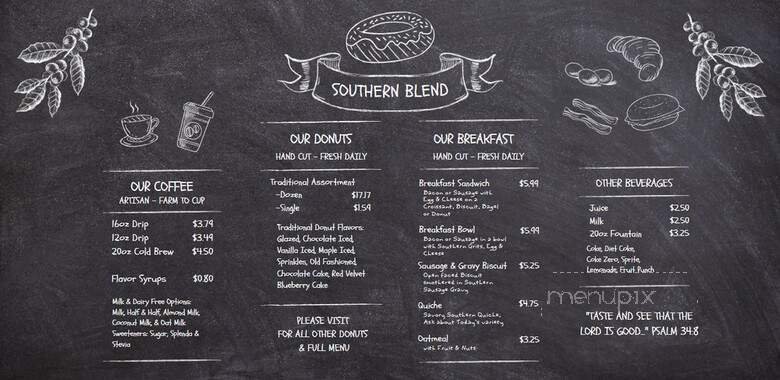 SOUTHERN BLEND
OUR COFFEE
ARTISAN - FARM TO CUP
16oz Drip $3.79
12oz Drip $3.49
20oz Cold Brew $4.50
Flavor Syrups $0.80
Milk & Dairy Free Options:
Milk, Half & Half, Almond Milk,
Coconut Milk, & Oat Milk
Sweeteners: Sugar, Splenda &
Stevia
OUR DONUTS
HAND CUT - FRESH DAILY
Traditional Assortment
-Dozen $17.17
-Single $1.59
Traditional Donut Flavors:
Glazed, Chocolate Iced,
Vanilla Iced, Maple Iced,
Sprinkles, Old Fashioned,
Chocolate Cake, Red Velvet
Blueberry Cake
PLEASE VISIT
FOR ALL OTHER DONUTS
& FULL MENU
OUR BREAKFAST
HAND CUT - FRESH DAILY
Breakfast Sandwich $5.99
Bacon or Sausage with
Egg & Cheese on a
Croissant, Biscuit, Bagel
or Donut
Breakfast Bowl $5.99
Bacon or Sausage in a bowl
with Southern Grits, Egg &
Cheese
Sausage & Gravy Biscuit $5.25
Open faced Biscuit
smothered in Southern
Sausage Gravy
Quiche $4.75
Savory Southern Quiche,
Ask about Today's variety
Oatmeal $3.25
with Fruit & Nuts
OTHER BEVERAGES
Juice $2.50
Milk $2.50
20oz Fountain $3.25
Coke, Diet Coke,
Coke Zero, Sprite,
Lemonade, Fruit Punch
menupix
"TASTE AND SEE THAT THE
LORD IS GOOD..." PSALM 34:8